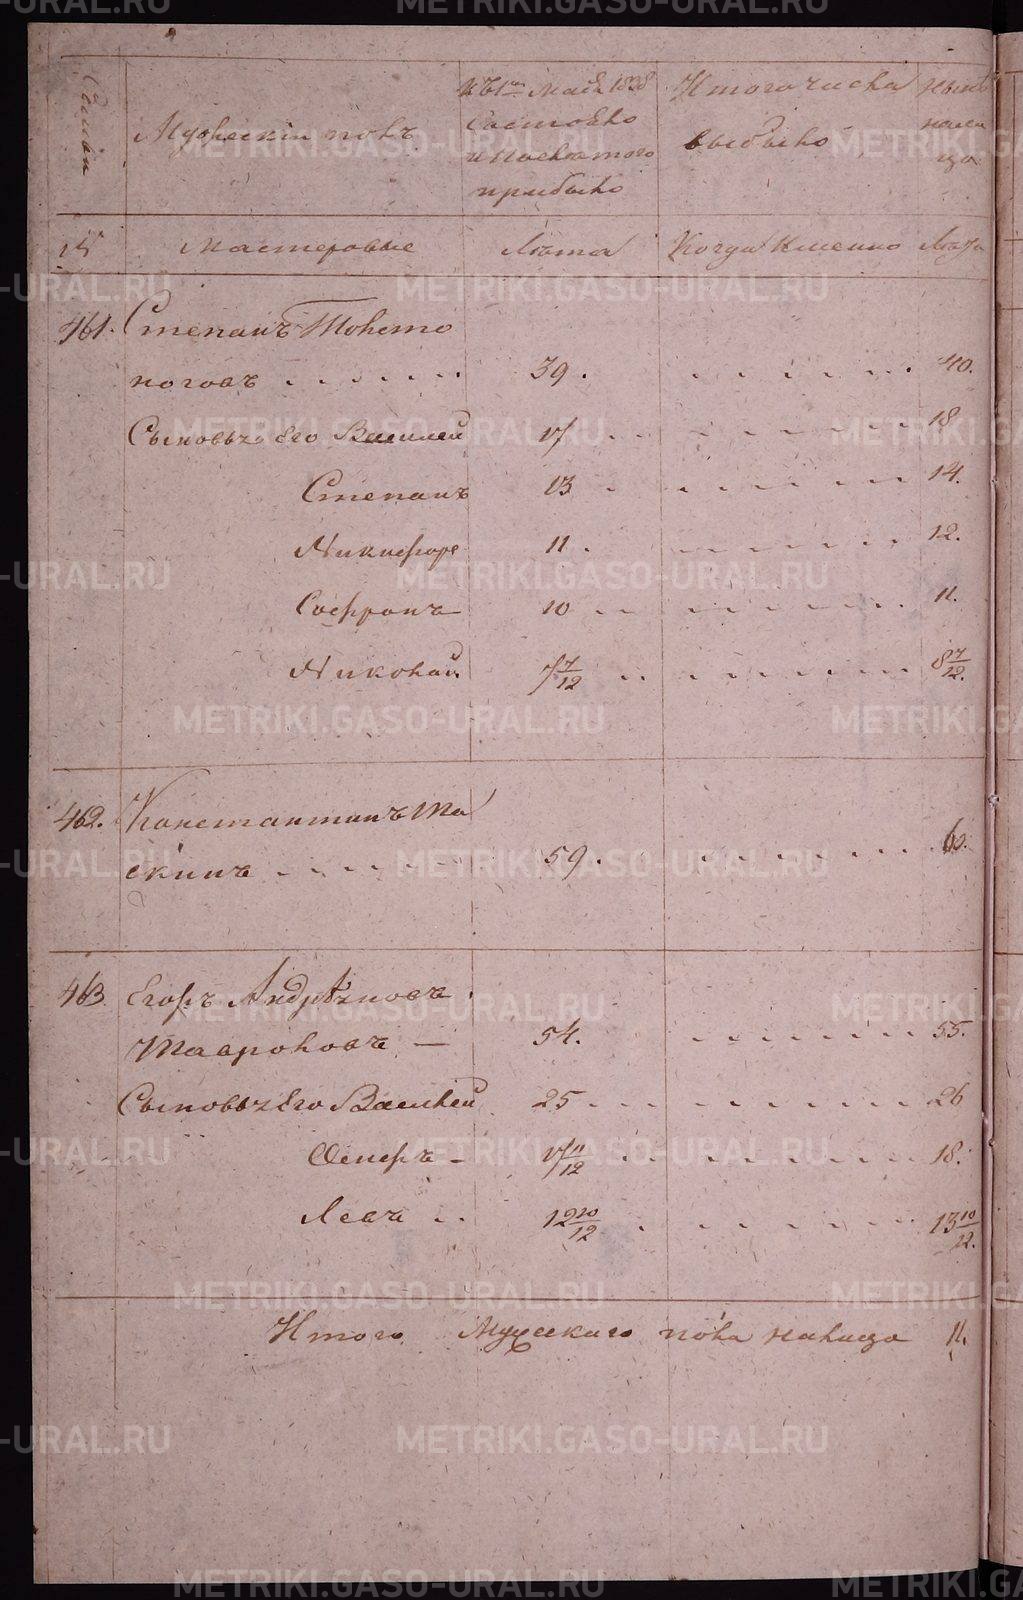 Семьи
Мужескій полъ
Къ 1му Маія 1838
Состояло
и после того
прибыло
Изтого числа
выбыло
Ныне
налицо
15
Мастеровые
Лета
Когда Именно
Лета
461. Степанъ Толсто
ноговъ 39. 40.
Сыновья Его Василей 17 18
Степанъ 13 14.
Никифоръ 11. 12.
Софронъ 10 11.
Николай 7 7/12 8 7/12.
462. Константинъ Та
скинъ 59. 60.
463. Егоръ Андреяновъ
Тавроловъ — 54. 55.
Сыновья Его Василей 25 26
17 11/12 18.
Левъ 12 10/12 13 10/12.
Итого Мужескаго пола налицо 11.
METRIKI.GASO-URAL.RU